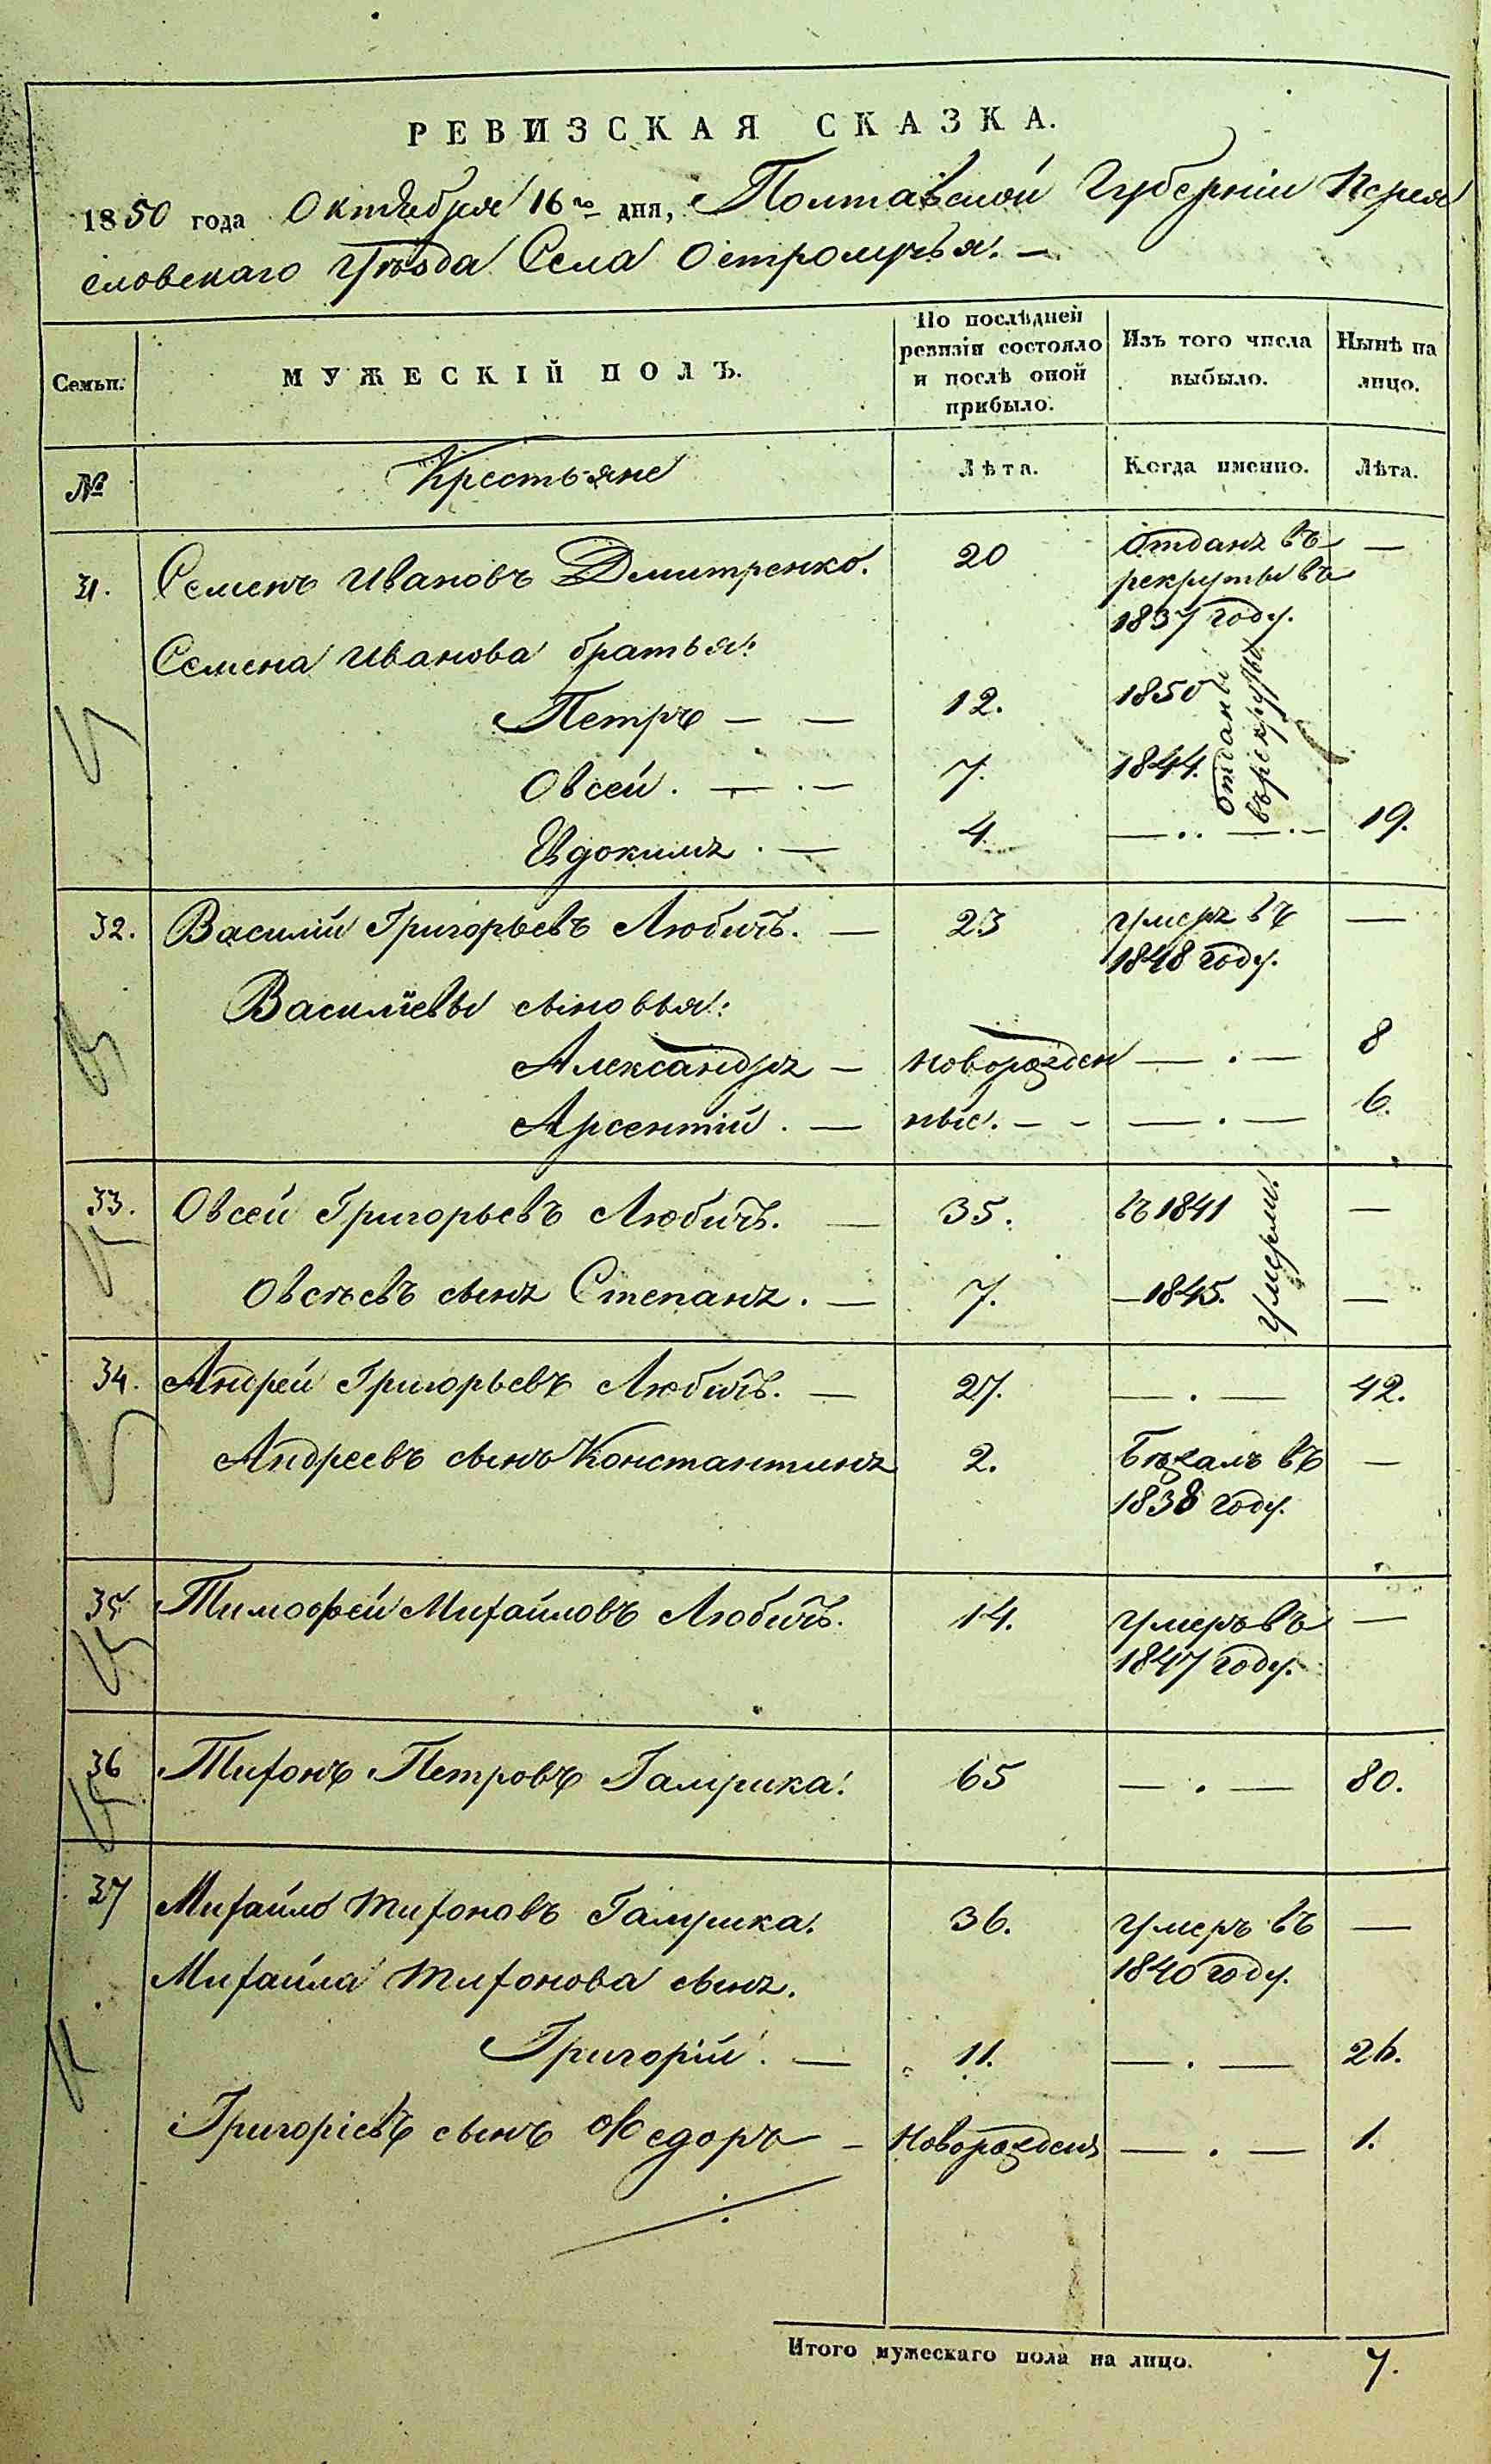 РЕВИЗСКАЯ СКАЗКА.
1850 года Октября 16го дня, Полтавской Губерніи Перея
словскаго Уѣзда Села Остролучья. —
Семьи.
МУЖЕСКІЙ ПОЛЪ.
По послѣдней ревизіи состояло и послѣ оной прибыло.
Изъ того числа выбыло.
Нынѣ на лицо.
№
Крестьяне
Лѣта.
Когда именно.
Лѣта.
31. Семенъ Ивановъ Дмитренко. 20 Отданъ въ —
рекруты въ
1837 году.
Семена Иванова братья:
Петръ — — 12. 1850
Овсей. — . — 7. 1844. отданы въ рекруты
Евдокимъ . — 4 — .. — . — 19.
32. Василій Григорьевъ Любичъ. — 23 умеръ въ —
1848 году.
Васильевы сыновья:
Александръ — новорожден — . — 8
Арсентій . — ные. – – — . — 6.
33. Овсей Григорьевъ Любичъ. — 35. въ 1841 умерли. —
Овсѣевъ сынъ Степанъ. — 7. — 1845. —
34. Андрей Григорьевъ Любичъ. — 27. — . — 42.
Андреевъ сынъ Константинъ 2. Бѣжалъ въ —
1838 году.
35. Тимофей Михайловъ Любичъ. 14. умеръ въ —
1847 году.
36 Тихонъ Петровъ Гамрика. 65 — . — 80.
37 Михайло Тихоновъ Гамрика. 36. умеръ въ —
1840 году.
Михайла Тихонова сынъ.
Григорій. — 11. — . — 26.
Григоріевъ сынъ Федоръ – Новорожденъ — . — 1.
Итого мужескаго пола на лицо. 7.